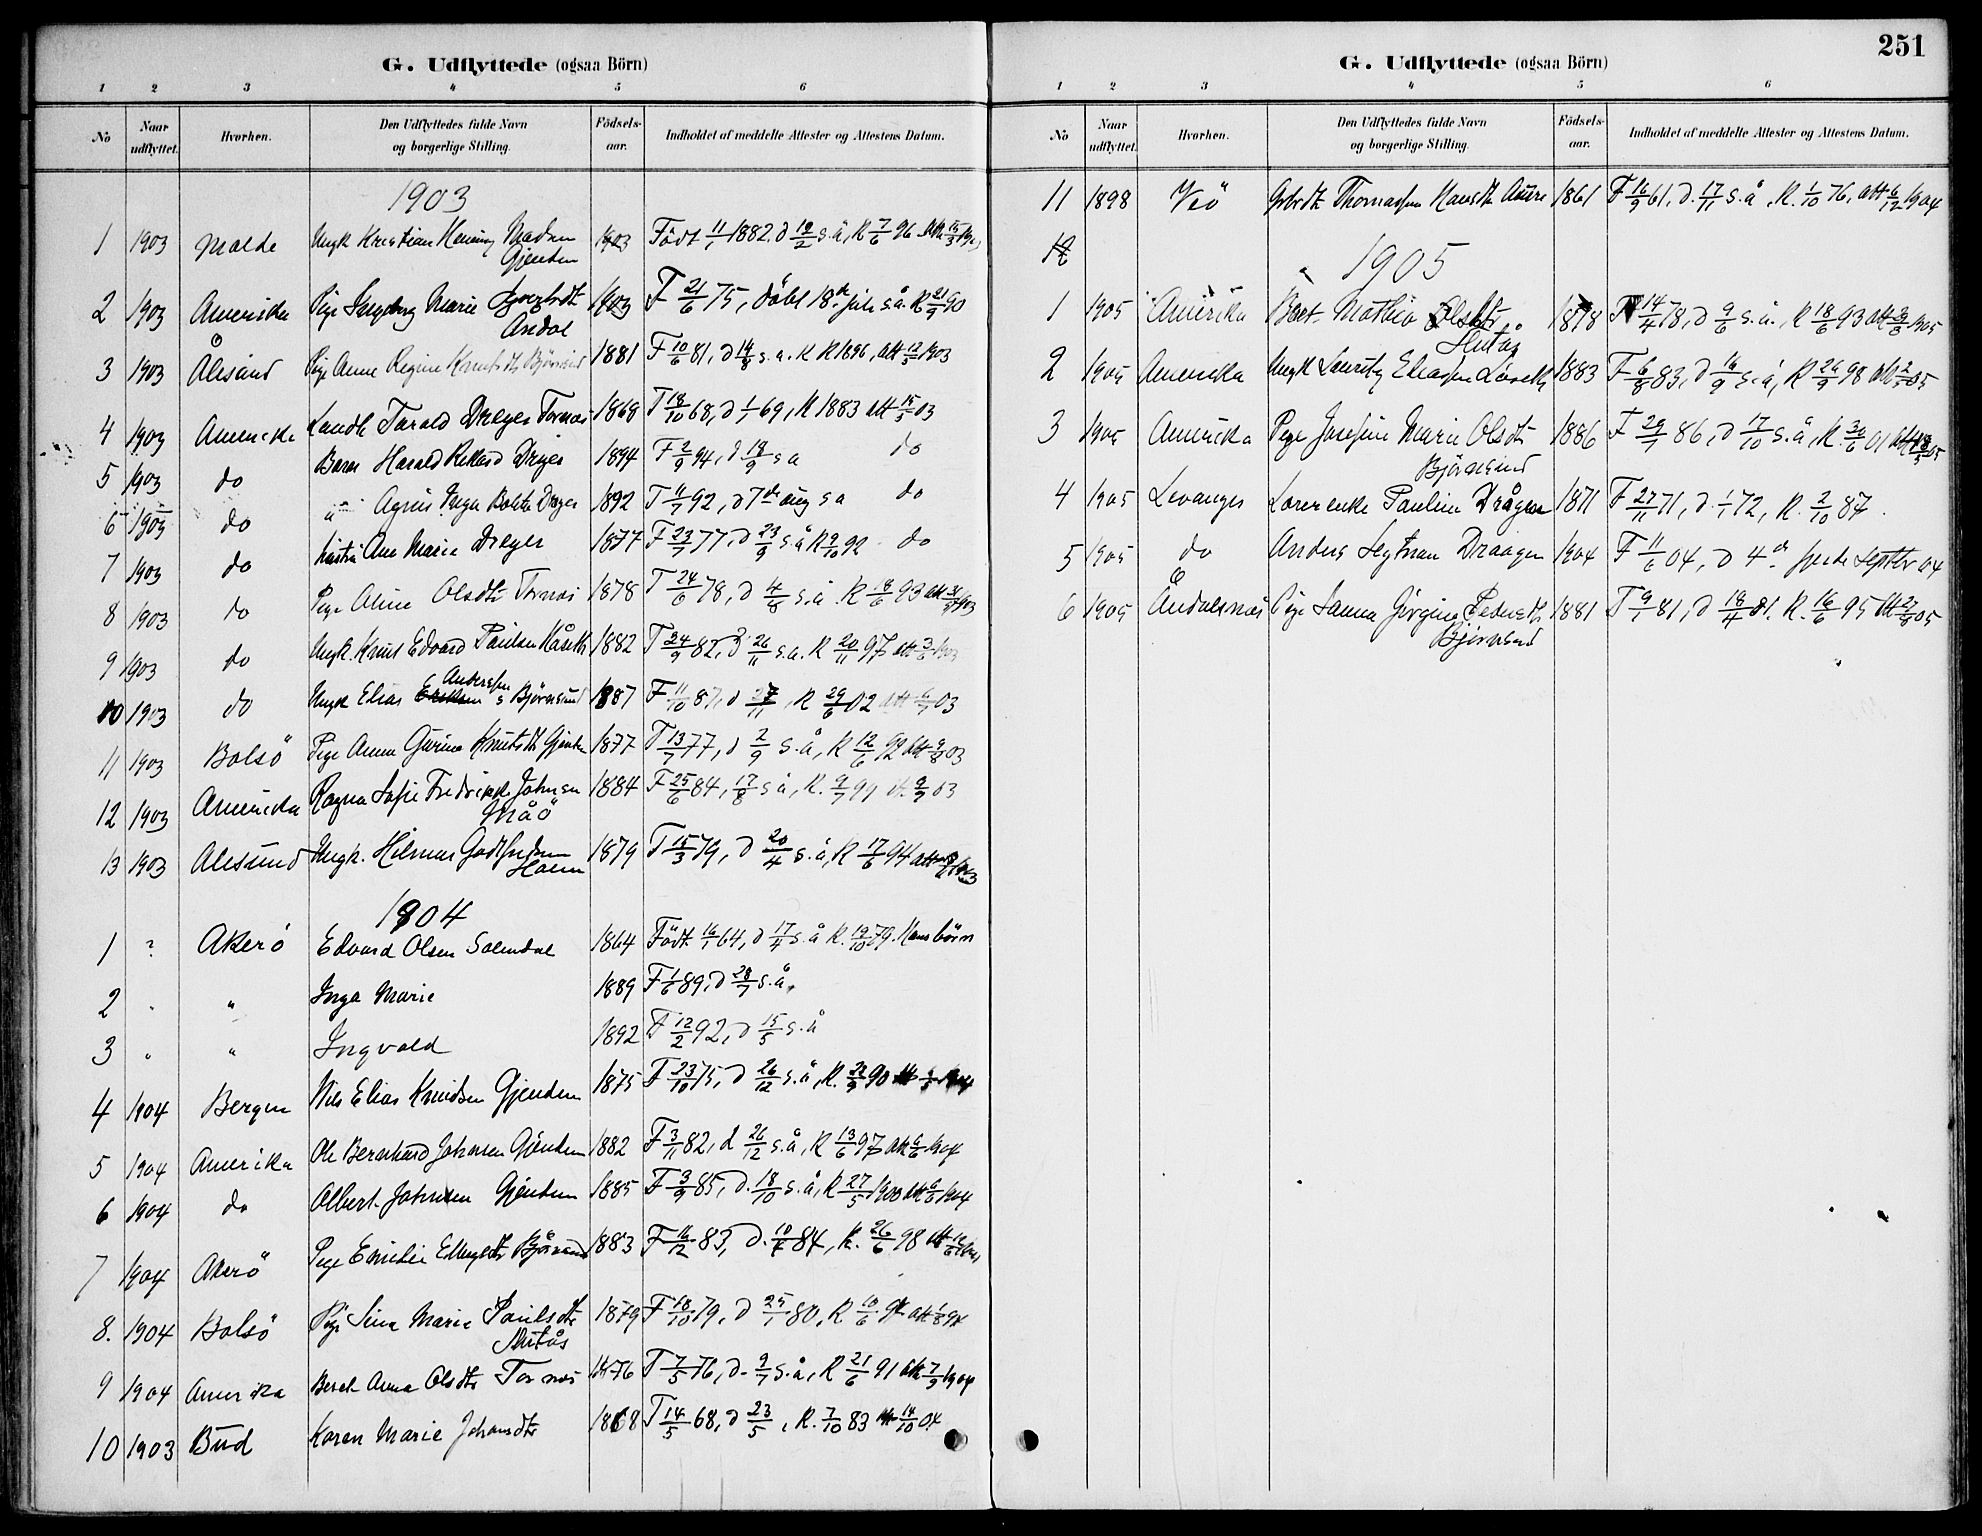 251
G. Udflyttede (ogsaa Börn)
1 2 3 4 5 6
No Naar udflyttet. Hvorhen. Den Udflyttedes fulde Navn og borgerlige Stilling. Födsels-aar. Indholdet af meddelte Attester og Attestens Datum.
1903
1 1903 Molde Ungk Kristian Henning Madsen 1903 Födt 11/1 1882. d 12/2 s.å, K 7/6 96
Gjendem
2 1903 Amerika Pige Ingeborg Marie 1903 F 21/6 75, döbt 18de juli s.å. K 21/9 90
3 1903 Ålesund Pige Anne Regine Knutsdtr Björnsund 1881 F 10/6 81, d 14/8 s.a. K 1896, att 12/5 1903
4 1903 Amerika Landh. Tarald Dreyer Tornes 1868 F 18/10 68, d 1/1 69, K 1883 att 15/5 03
5 1903 do Barn Harald Rikard Dreyer 1894 F 2/9 94, d 18/9 s a do
6 1903 do Agnes Inga Dreyer 1892 F 11/7 92, d 7de aug s a do
7 1903 do Ane Marie Dreyer 1877 F 23/7 77, d 23/9 s.å K 9/10 92 do
8 1903 do Pige Aline Olsdtr Tornes 1878 F 24/6 78, d 4/8 s.å. K 18/6 93
9 1903 do Ungk. Knut Edvard Paulsen 1882 F 24/9 82, d 26/11 s.a. K 20/11 97 att 3/6 1903
Anderssen
10 1903 do Ungk Elias Eriksen Björnsund 1887 F 11/10 87, d 27/11, K 29/6 02 att 6/7 03
11 1903 Bolsö Pige Anna Gurine Knutsdtr 1877 F 13/7 77, d 2/9 s.å, K 12/6 92 att 9/8 03
12 1903 Amerika Ragna Sofie Fredrikke Johnsen 1884 F 25/6 84, 17/8 s å, K. 9/7 99 att 9/9 03
Måö
13 1903 Alesund Ungk. Hilmar 1879 F 15/3 79, d 20/4 s.å, K 17/6 94
1904
1 ? Akerö Edvard Olsen Solemdal 1864 Födt 16/1 64, d 17/4 s.å K. 19/10 79. Hans börn
2 " " Inga Marie 1889 F 1/6 89, d 28/7 s.å.
3 " " Ingvald 1892 F 12/2 92, d 15/5 s.å
4 1904 Bergen Nils Elias Knudsen Gjendem 1875 F 23/10 75, d 26/12 s.å, K. 90
5 1904 Amerika Ole Bernhard Johnsen Gjendem 1882 F 3/11 82, d 26/12 s.å, K 13/6 97 att 6/6 1904
6 1904 do Albert Johnsen Gjendem 1885 F 3/9 85, d. 18/10 s.å, K 27/5 1900 att 6/6 1904
7 1904 Akerö Pige Emilie Björnsund 1883 F 16/12 83, d. 84, K. 26/6 98
8. 1904 Bolsö Pige Sina Marie Paulsdtr 1879 F 18/10 79, d 25/1 80, K 10/6 94
9 1904 Amerika Beret Anna Olsdtr Tornes 1876 F 7/5 76, d. 9/7 s.å, K 21/6 91 att 7/9 1904
10 1903 Bud Karen Marie Johansdtr 1868 F 14/5 68, d 23/5, K. 7/10 83 14/10 04
G. Udflyttede (ogsaa Börn)
1 2 3 4 5 6
No Naar udflyttet. Hvorhen. Den Udflyttedes fulde Navn og borgerlige Stilling. Födsels-aar. Indholdet af meddelte Attester og Attestens Datum.
11 1898 Veö Thomassen 1861 F 16/9 61, d. 17/11 s.å, K. 1/10 76, att 6/12 1904
12
1905
1 1905 Amerika Beret Mathea Olsdtr 1878 F 14/4 78, d 9/6 s.å., K 18/6 93
2 1905 Amerika Ungk Lauritz Eliassen 1883 F 6/8 83, d 16/9 s.å, K 26/9 98
3 1905 Amerika Pige Josefine Marie Olsdtr 1886 F 29/7 86, d 17/10 s.å, K 30/6 01
Björnsund
4 1905 Levanger Lærerenke Pauline Drågen 1871 F 27/11 71, d. 1/1 72, K. 2/10 87.
5 1905 do Anders Draagen 1904 F 11/6 04, d 4de septbr 04
6 1905 Åndalsnes Pige Sanna Jörgine Pedersdtr 1881 F 9/1 81, d 18/4 81. K. 16/6 95
Björnsund